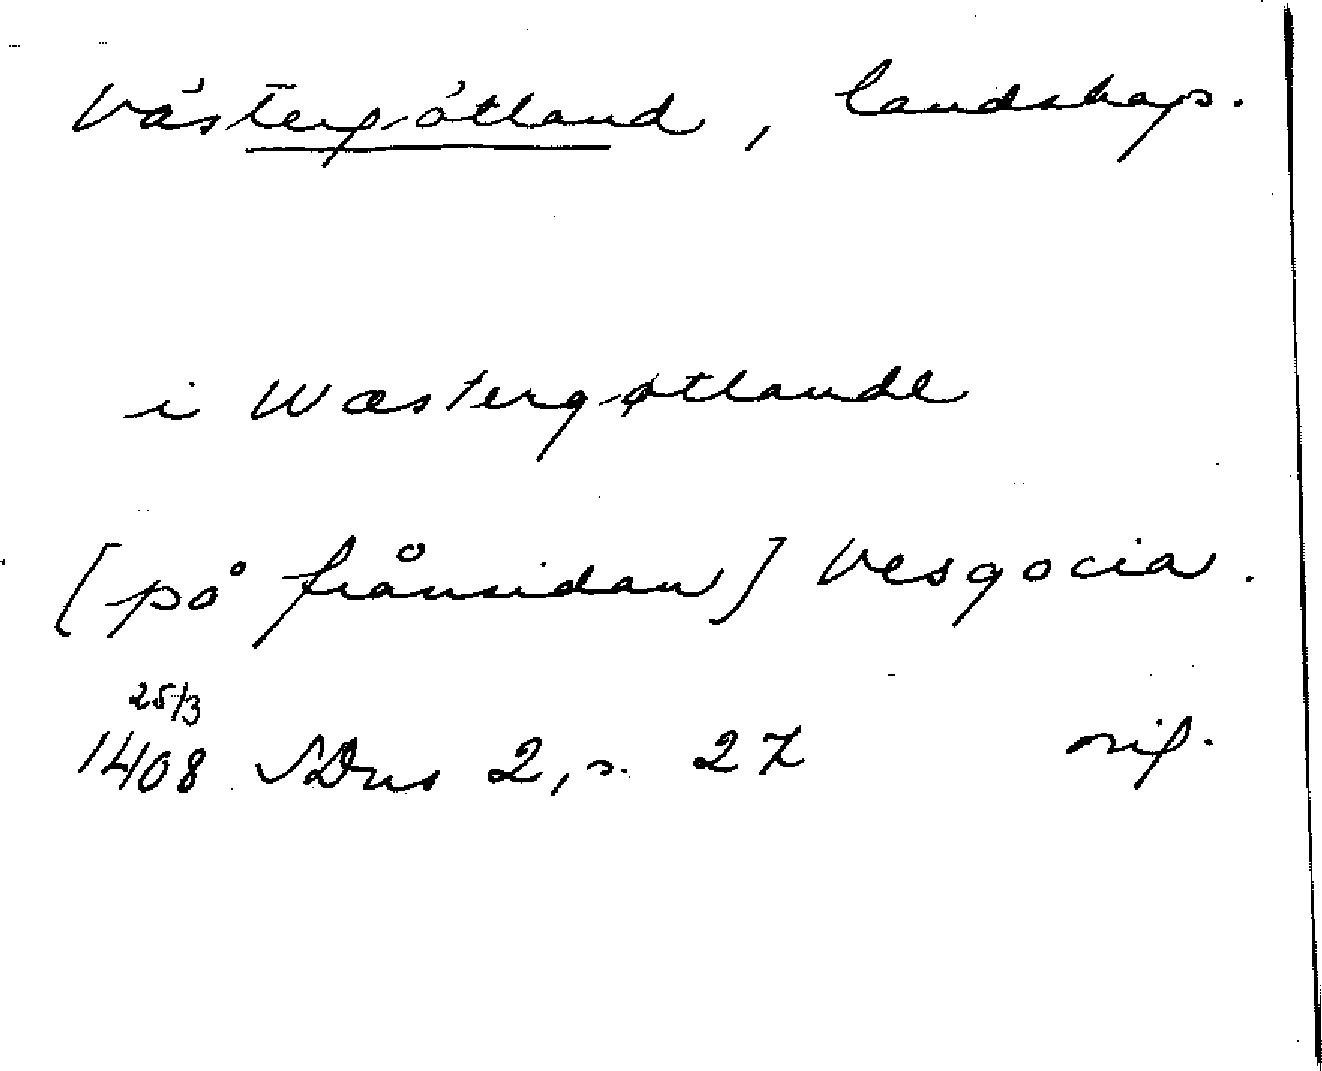 Västergötland, landskap.
i Wæstergøtlande
[på frånsidan] Vesgocia.
25/3
1408 SDns 2, s. 27 orig.